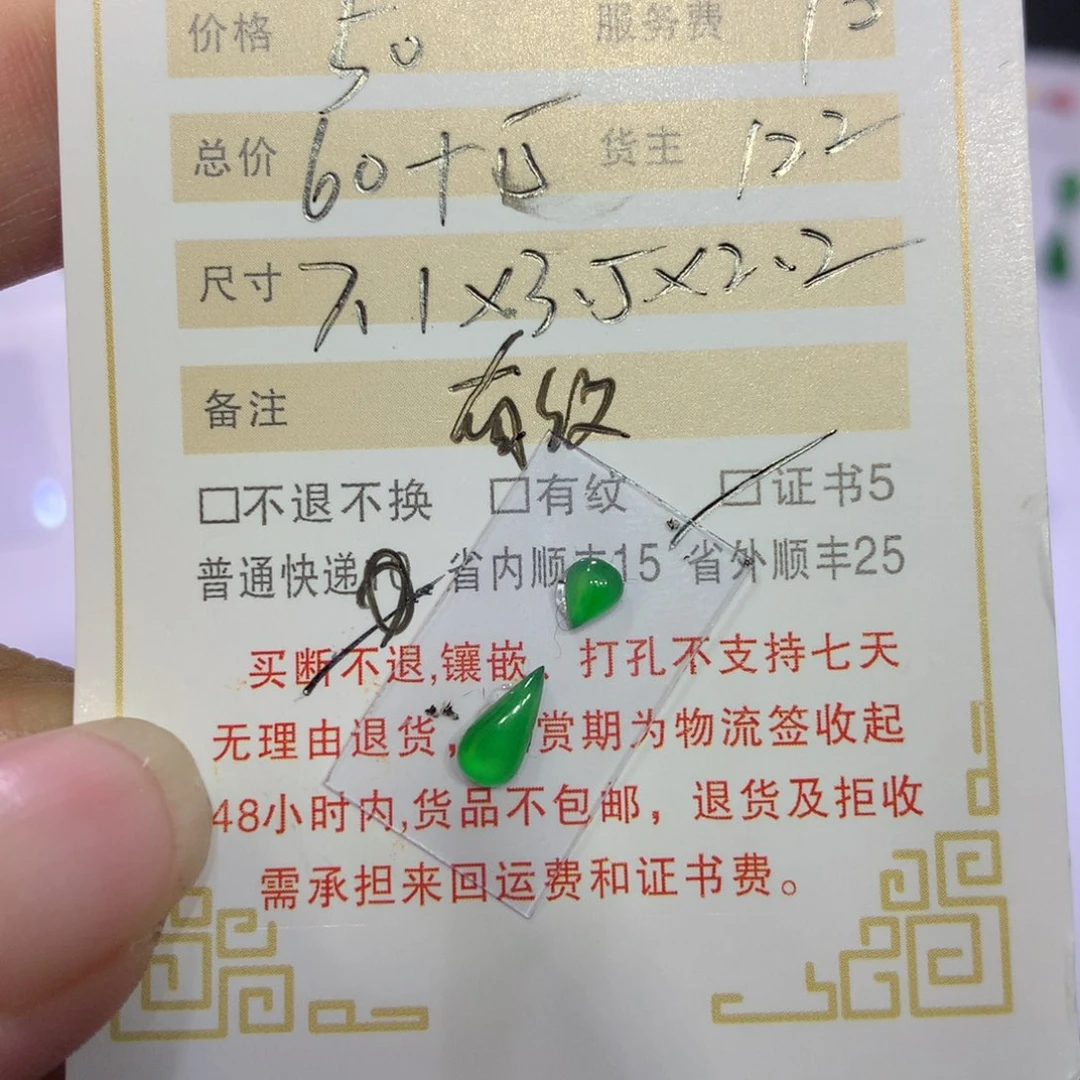 价格 50 服务费 15
总价 60+ 货主 122
尺寸 7.1×3.5×2.2
备注 有纹
□不退不换 □有纹 □证书5
普通快递 省内顺丰15 省外顺丰25
买断不退,镶嵌、打孔不支持七天
无理由退货,赏期为物流签收起
48小时内,货品不包邮，退货及拒收
需承担来回运费和证书费。